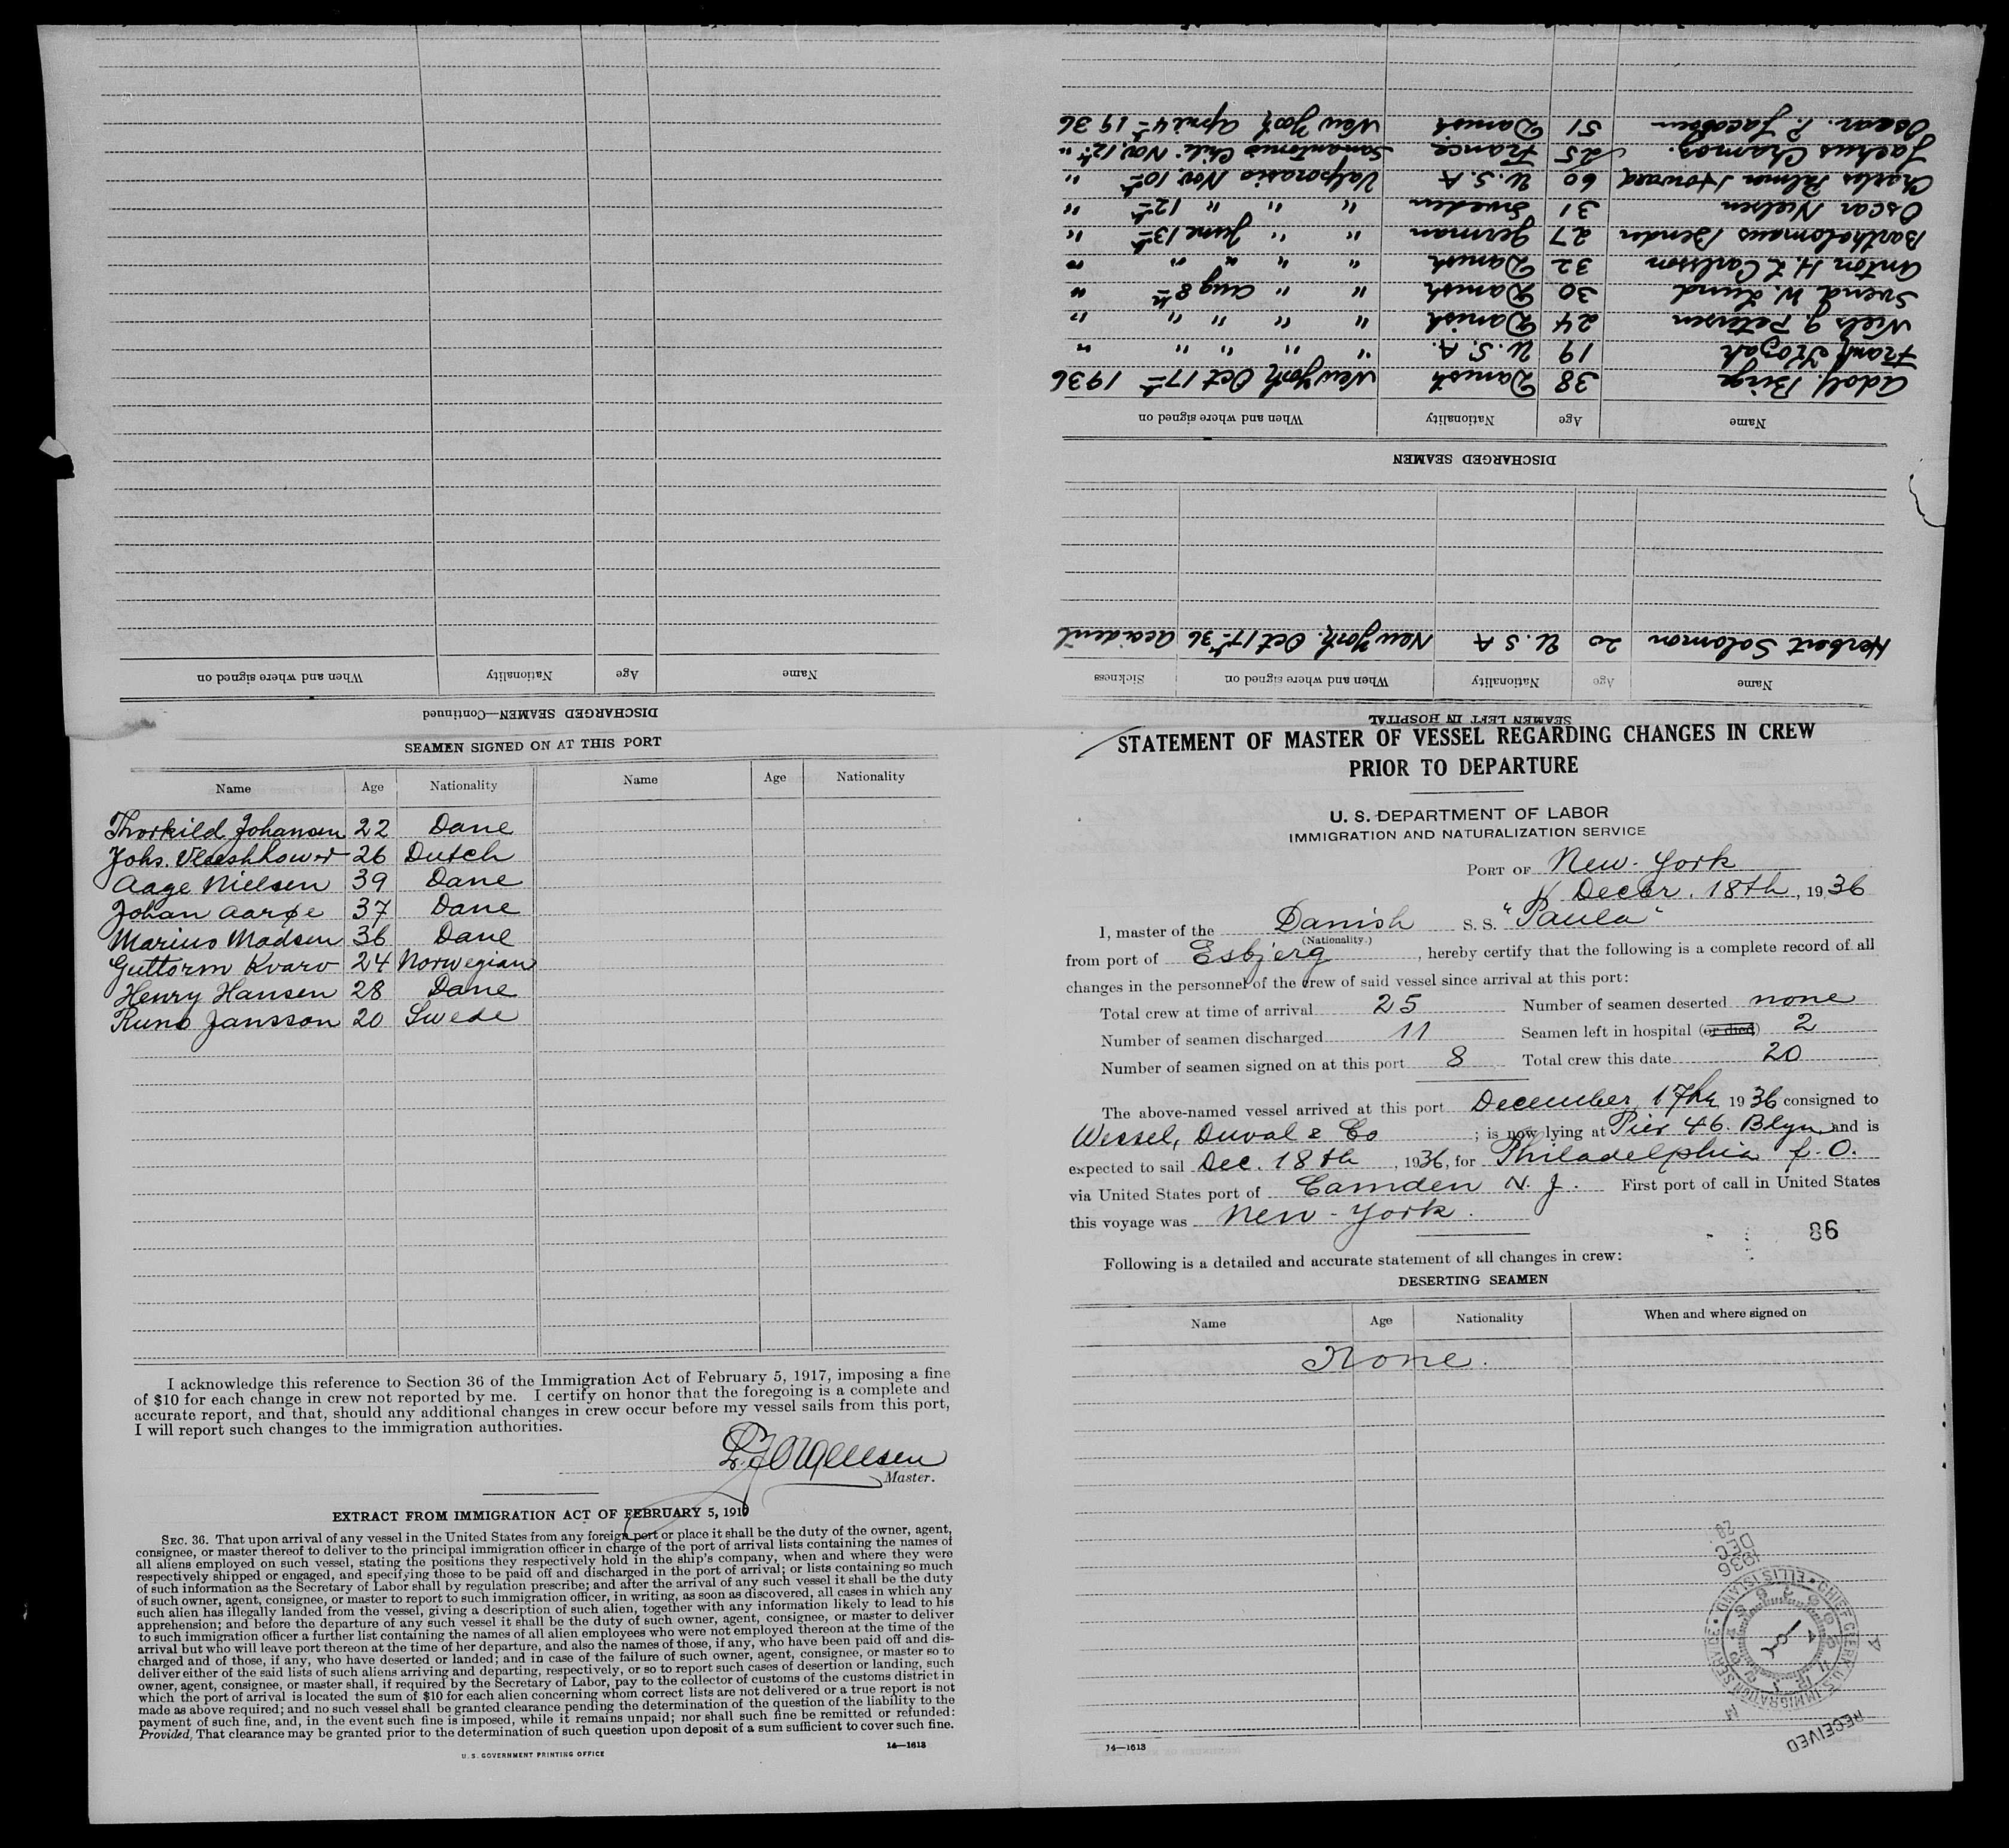 STATEMENT OF MASTER OF VESSEL REGARDING CHANGES IN CREW
PRIOR TO DEPARTURE
U. S. DEPARTMENT OF LABOR
IMMIGRATION AND NATURALIZATION SERVICE
PORT OF New-York
Decbr. 18th, 1936
I, master of the Danish S. S. "Paula"
(Nationality)
from port of Esbjerg, hereby certify that the following is a complete record of all
changes in the personnel of the crew of said vessel since arrival at this port:
Total crew at time of arrival 25 Number of seamen deserted none
Number of seamen discharged 11 Seamen left in hospital (or died) 2
Number of seamen signed on at this port 8 Total crew this date 20
The above-named vessel arrived at this port December 17th, 1936 consigned to
Wessel, Duval & Co; is now lying at Pier 46. Blyn and is
expected to sail Dec. 18th, 1936, for Philadelphia f. O.
via United States port of Camden N. J. First port of call in United States
this voyage was New-York.
86
Following is a detailed and accurate statement of all changes in crew:
DESERTING SEAMEN
Name Age Nationality When and where signed on
None.
RECEIVED
CHIEF CLERK U.S. IMMIGRATION SERVICE • ELLIS ISLAND •
1936 DEC 28
14—1613
SEAMEN LEFT IN HOSPITAL
Name Age Nationality When and where signed on Sickness
Herbert Solomon 20 U.S A New York. Oct 17th 36 accident
DISCHARGED SEAMEN
Name Age Nationality When and where signed on
Adolf Birge 38 Danish New York Oct 17th 1936
Frank Kozak 19 U.S.A. " " " " "
Niels J. Petersen 24 Danish " " " " "
Svend W. Lund 30 Danish " " Aug 8th "
Anton H. L Carlsson 32 Danish " " " " "
Bartholomaus Bender 27 German " " June 13th "
Oscar Nielsen 31 Sweden " " " 12th "
Charles Palmer Howard 60 U.S.A Valparasio Nov. 10th "
Jachus Chamoz. 25 France Sanantonio Chile. Nov. 12th "
Oscar. P. Jacobsen 51 Danish New York April 4th 1936
DISCHARGED SEAMEN—Continued
Name Age Nationality When and where signed on
SEAMEN SIGNED ON AT THIS PORT
Name Age Nationality Name Age Nationality
Thorkild Johansen 22 Dane
Johs. Vleeshhower 26 Dutch
Aage Nielsen 39 Dane
Johan Aarøe 37 Dane
Marius Madsen 36 Dane
Guttorm Kvarv 24 Norwegian
Henry Hansen 28 Dane
Runo Jansson 20 Swede
I acknowledge this reference to Section 36 of the Immigration Act of February 5, 1917, imposing a fine
of $10 for each change in crew not reported by me. I certify on honor that the foregoing is a complete and
accurate report, and that, should any additional changes in crew occur before my vessel sails from this port,
I will report such changes to the immigration authorities.
Jorgensen
Master.
EXTRACT FROM IMMIGRATION ACT OF FEBRUARY 5, 1917
SEC. 36. That upon arrival of any vessel in the United States from any foreign port or place it shall be the duty of the owner, agent,
consignee, or master thereof to deliver to the principal immigration officer in charge of the port of arrival lists containing the names of
all aliens employed on such vessel, stating the positions they respectively hold in the ship's company, when and where they were
respectively shipped or engaged, and specifying those to be paid off and discharged in the port of arrival; or lists containing so much
of such information as the Secretary of Labor shall by regulation prescribe; and after the arrival of any such vessel it shall be the duty
of such owner, agent, consignee, or master to report to such immigration officer, in writing, as soon as discovered, all cases in which any
such alien has illegally landed from the vessel, giving a description of such alien, together with any information likely to lead to his
apprehension; and before the departure of any such vessel it shall be the duty of such owner, agent, consignee, or master to deliver
to such immigration officer a further list containing the names of all alien employees who were not employed thereon at the time of the
arrival but who will leave port thereon at the time of her departure, and also the names of those, if any, who have been paid off and dis-
charged and of those, if any, who have deserted or landed; and in case of the failure of such owner, agent, consignee, or master so to
deliver either of the said lists of such aliens arriving and departing, respectively, or so to report such cases of desertion or landing, such
owner, agent, consignee, or master shall, if required by the Secretary of Labor, pay to the collector of customs of the customs district in
which the port of arrival is located the sum of $10 for each alien concerning whom correct lists are not delivered or a true report is not
made as above required; and no such vessel shall be granted clearance pending the determination of the question of the liability to the
payment of such fine, and, in the event such fine is imposed, while it remains unpaid; nor shall such fine be remitted or refunded:
Provided, That clearance may be granted prior to the determination of such question upon deposit of a sum sufficient to cover such fine.
U. S. GOVERNMENT PRINTING OFFICE
14—1613